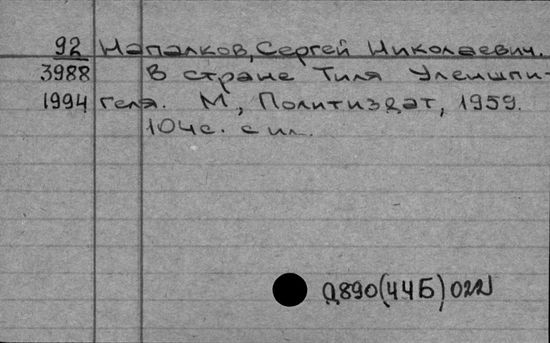 92 Напалков, Сергей Николаевич.
3988 В стране Тиля Уленшпи-
1994 геля. М, Политиздат, 1959.
104с. с ил.
(44Б)